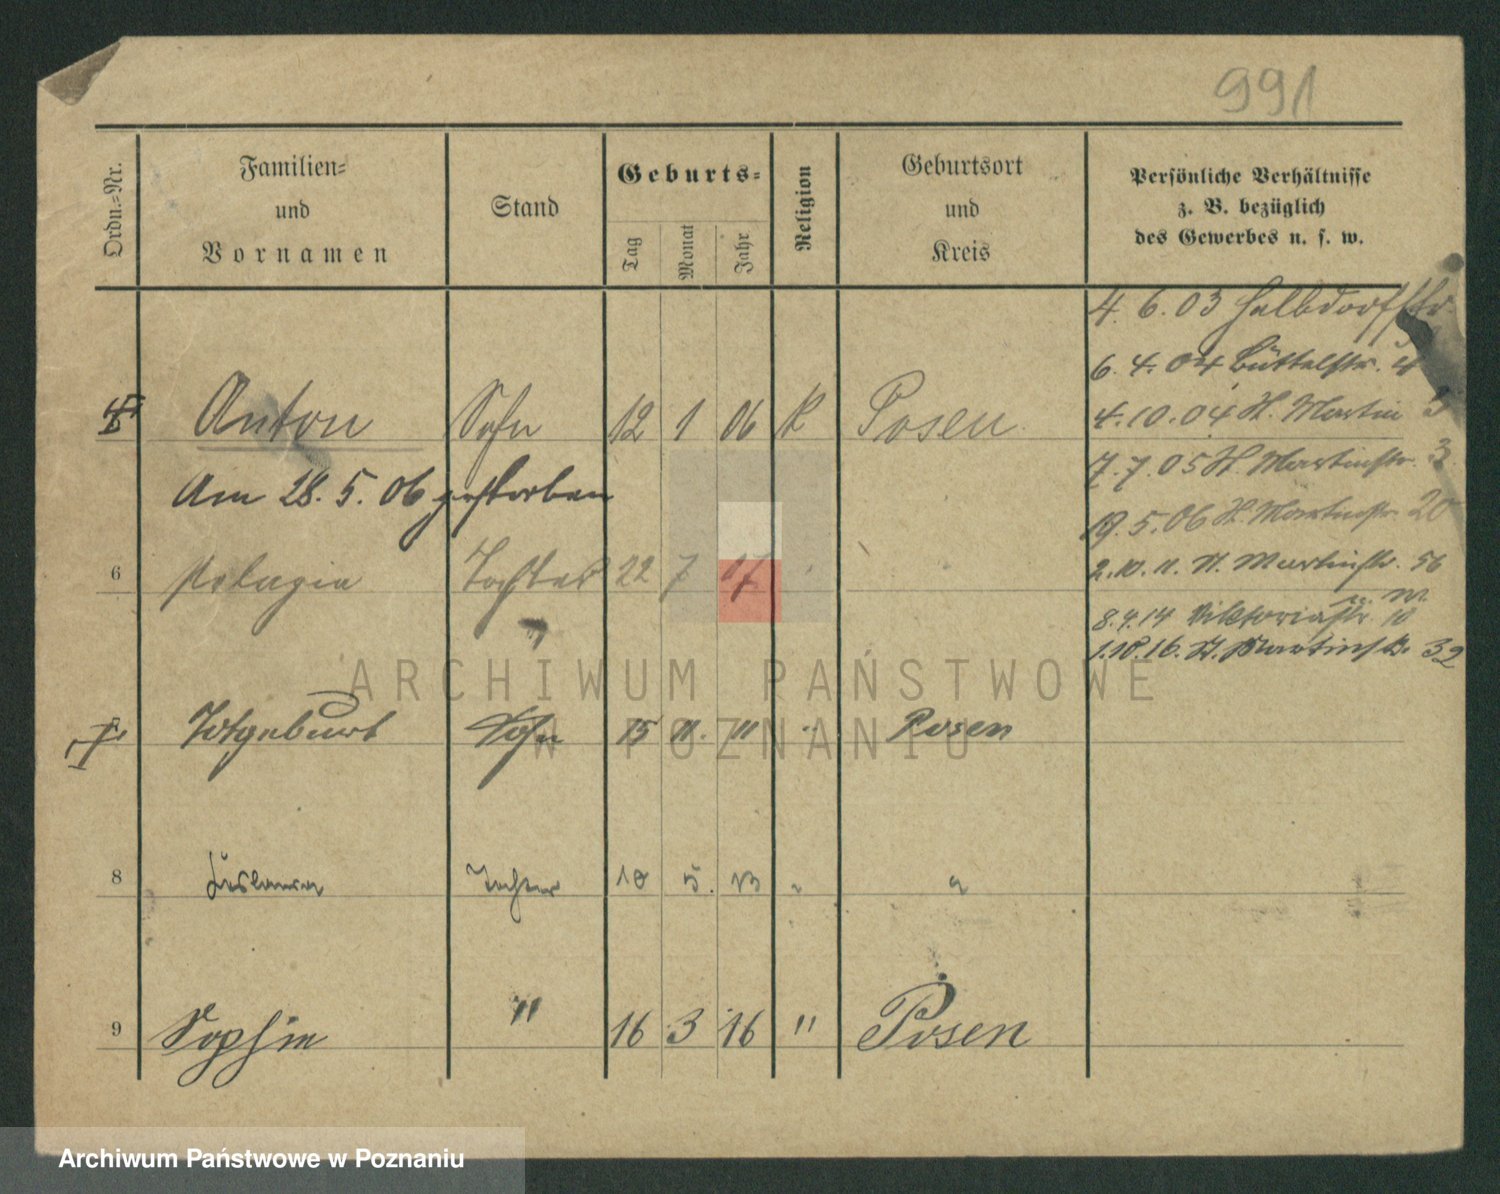 991
Ordn.-Nr.
Familien-
und
Vornamen
Stand
Geburts-
Tag
Monat
Jahr
Religion
Geburtsort
und
Kreis
Persönliche Verhältnisse
z. B. bezüglich
des Gewerbes u. s. w.
4. 6. 03 Halbdorfstr.
6. 4. 04 Büttelstr. 4
4. 10. 04 St. Martin 3
5 Anton Sohn 12 1 06 K Posen
7. 7. 05 St. Martinstr. 3
Am 28. 5. 06 gestorben
19. 5. 06 St. Martinstr. 20
6 Pelagia Tochter 22 7 07
2. 10. 11. St. Martinstr. 56
8. 4. 14 Viktoriastr. 10
1. 10. 16. St. Martinstr. 32
ARCHIWUM PAŃSTWOWE
W POZNANIU
7 Totgeburt Sohn 15 11. 11 " Posen
8 Tochter 18 5. 13 " "
9 Sophie " 16 3 16 " Posen
Archiwum Państwowe w Poznaniu